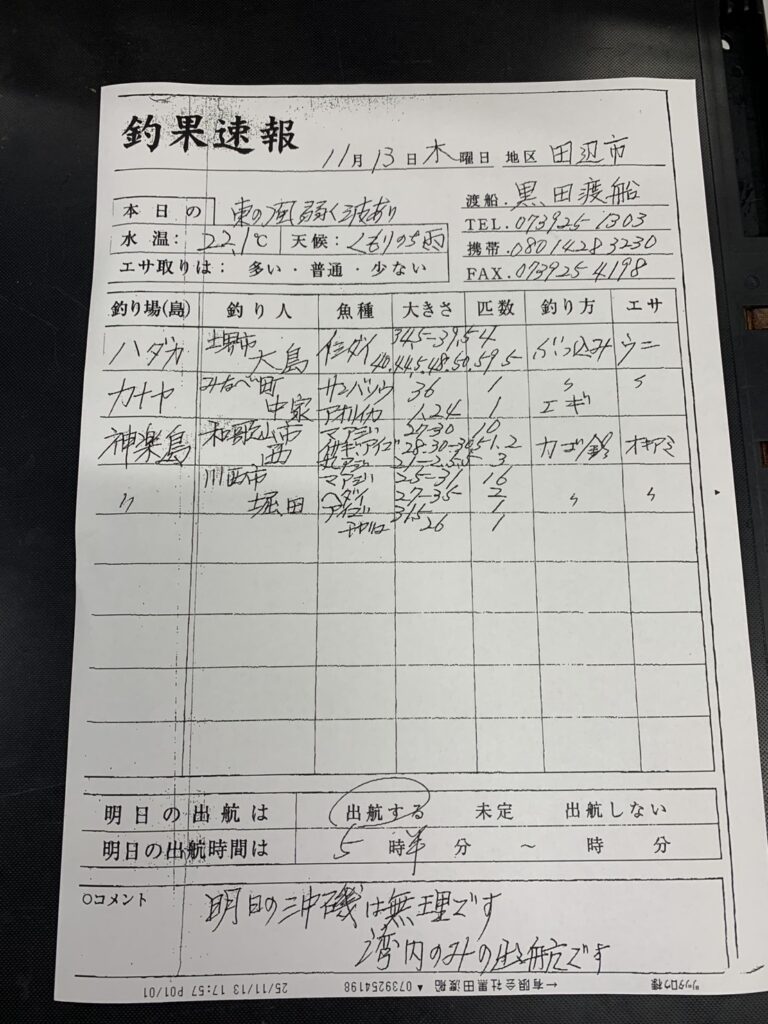 釣果速報
11月13日木曜日 地区 田辺市
本日の 東の風弱く波あり
渡船.黒田渡船
水温: 22.1℃ 天候: くもりのち雨
TEL.0739251303
携帯.08014283230
エサ取りは: 多い・普通・少ない
FAX.0739254198
釣り場(島) 釣り人 魚種 大きさ 匹数 釣り方 エサ
ハダカ 堺市 大島 イシダイ 34,5-39,5 4 ぶっ込み ウニ
40.44,5.48.50.59 5
カナヤ みなべ町 中家 サンバソウ 36 1 〃 〃
アオリイカ 1,24 1 エギ
神楽島 和歌山市 西 マアジ 27-30 10 カゴ釣 オキアミ
イサギ.アイゴ 28.30-30,5 1.2
3
〃 川西市 堀田 マアジ 25-31 16 〃 〃
ヘダイ 27-35 2
アイゴ 31,5 1
26 1
明日の出航は 出航する 未定 出航しない
明日の出航時間は 5時半分 ～ 時 分
○コメント 明日の沖磯は無理です
湾内のみの出航です
25/11/13 17:57 P01/01 ▲ 0739254198 ←有限会社黒田渡船 ツッタロウ様